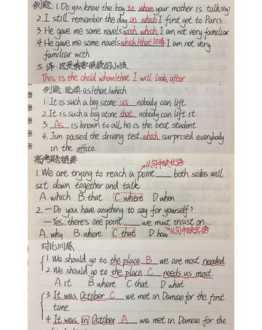 例题: 1. Do you know the boy to whom your mother is talking
2. I still remember the day on which I first got to Paris
3. He gave me some novels with which I am not very familiar
4. He gave me some novels which/that I am not very
familiar with
5.
This is the child whom/that I will look after
as/that/which
1. It is such a big stone as nobody can lift
2. It is such a big stone that nobody can lift it
3. As is known to all, he is the best student
4. Jim passed the driving test which surprised everybody
in the office
1. We are trying to reach a point both sides will
sit down together and talk
A. which B. that C. where D. when
2. — Do you have anything to say for yourself?
— Yes, there's one point we must insist on
A. why B. where C. that D. how
对比训练
1. We should go to the place B we are most needed
2. We should go to the place C needs us most
A. it B. where C. that D. what
3. It was October C we met in Damao for the first
time
4. It was in October A we met in Damao for the